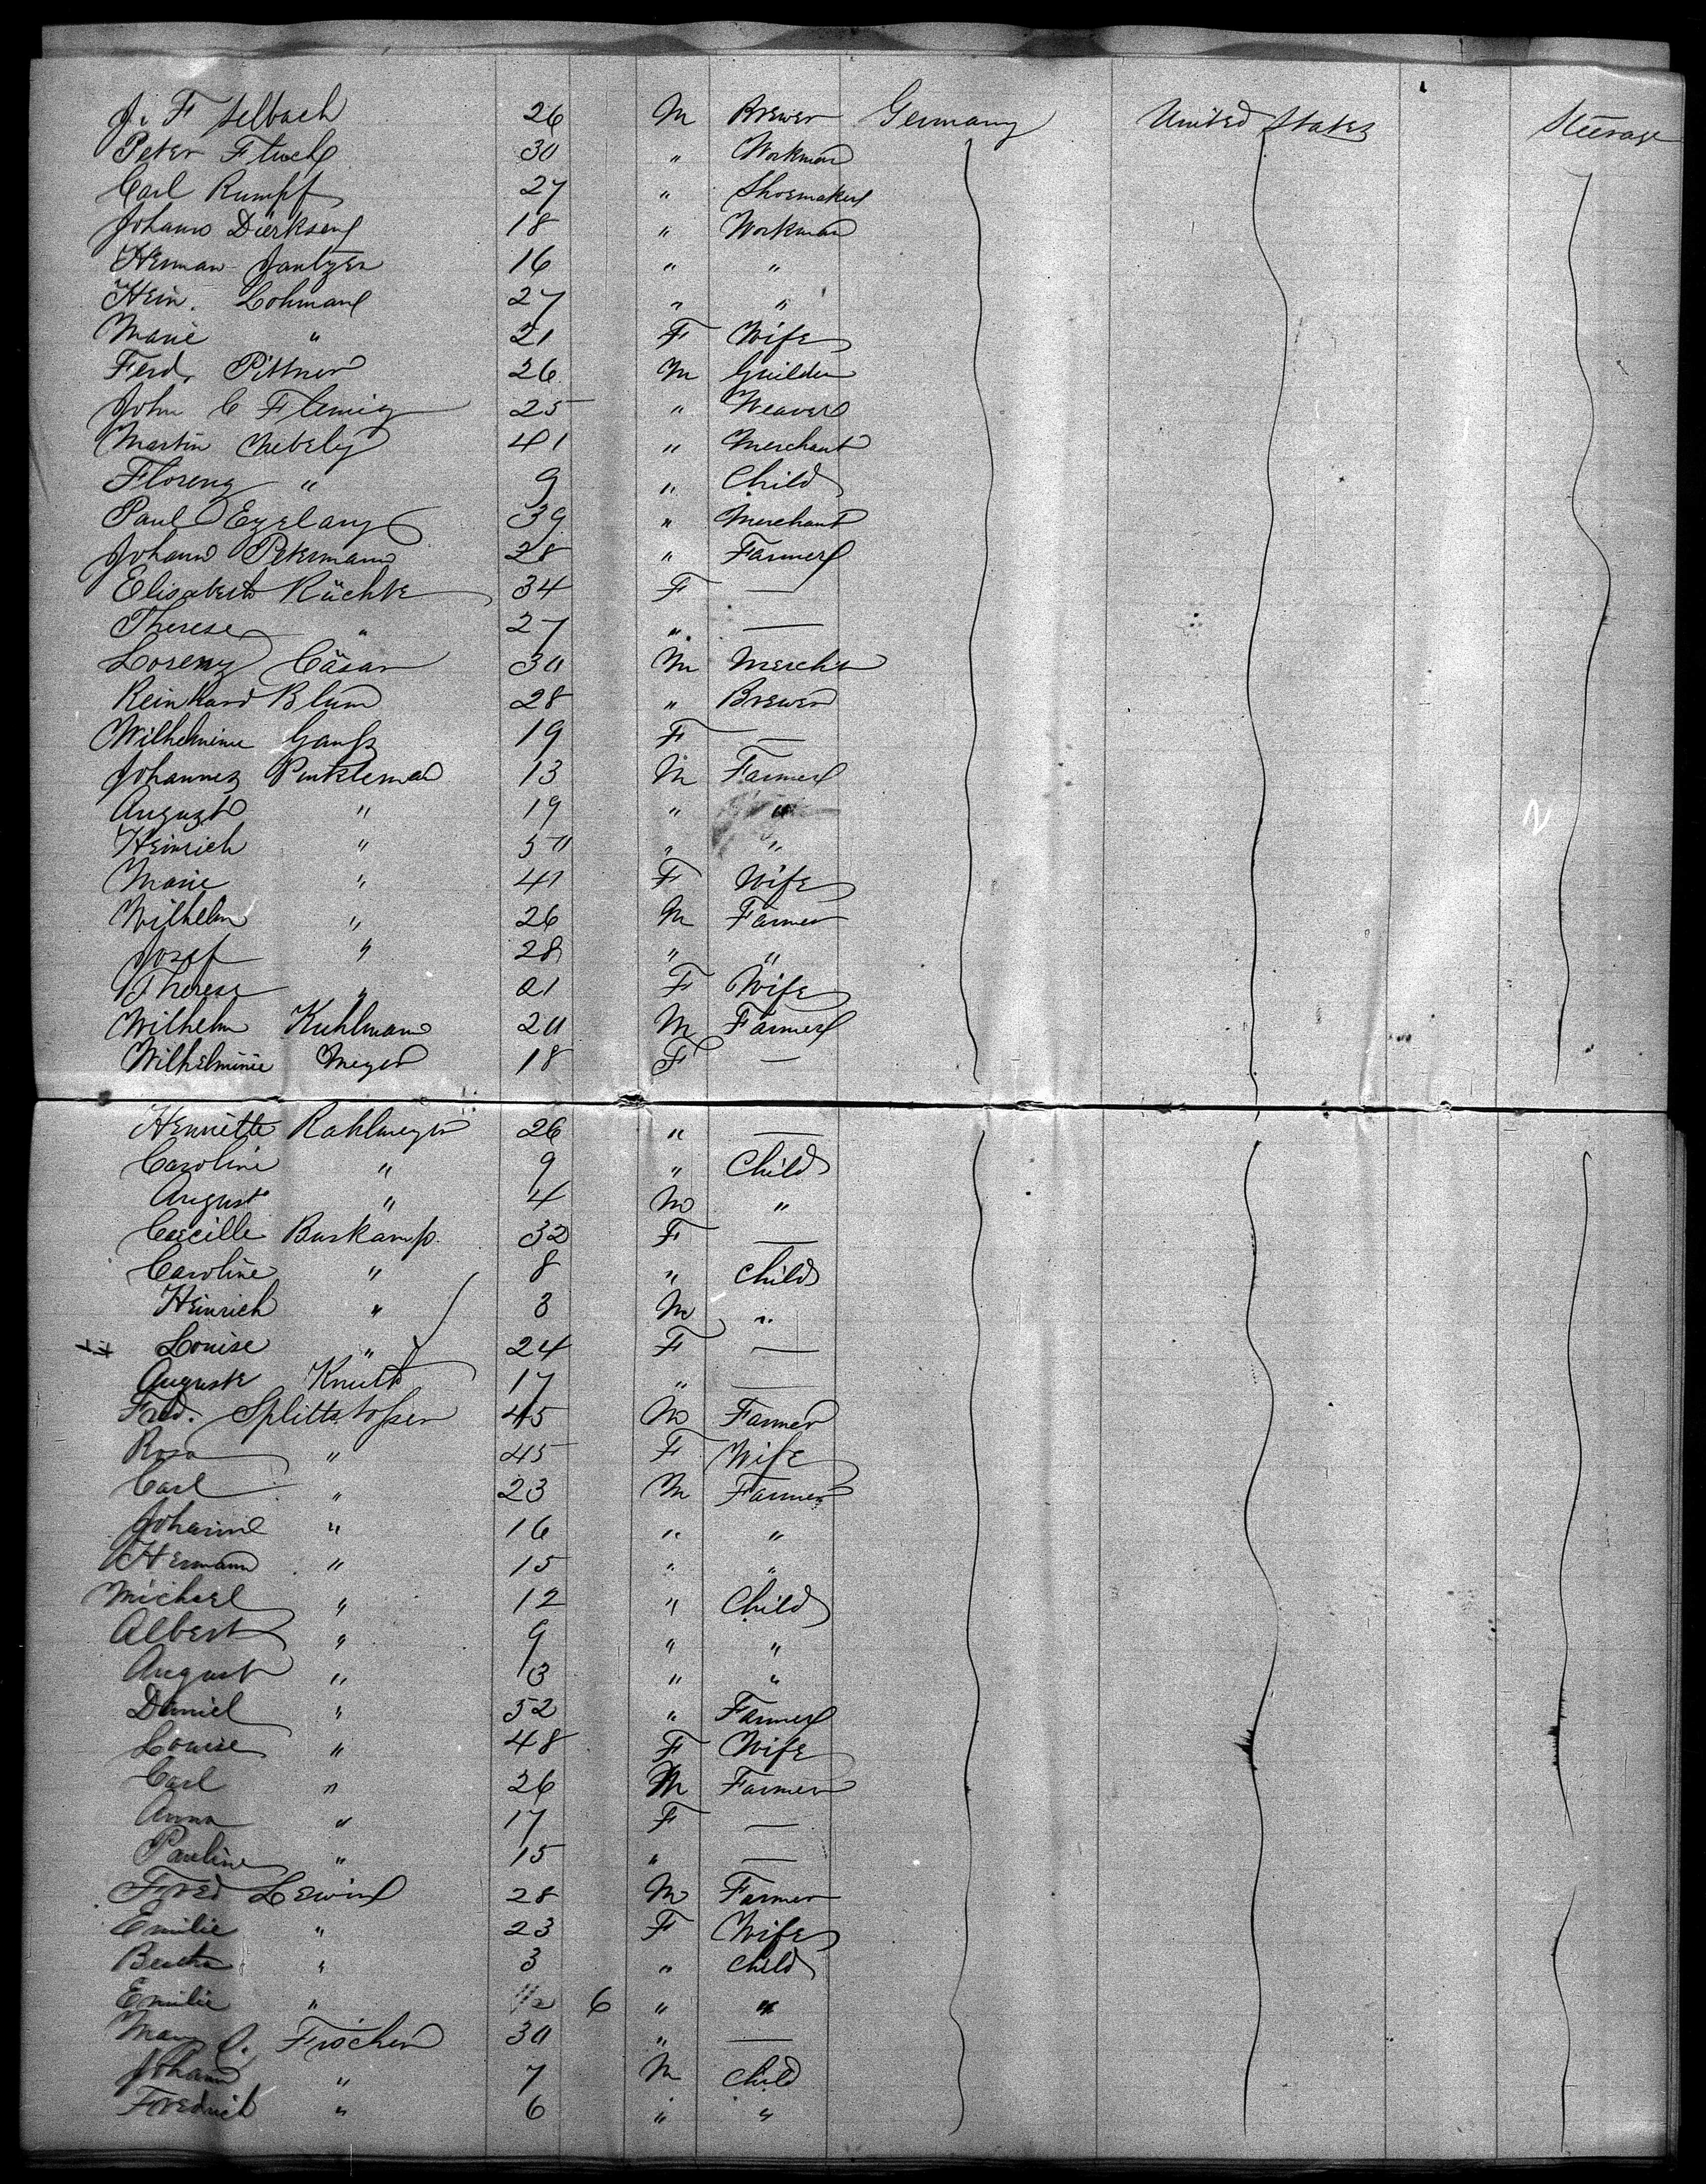 J. F. Selbach 26 M Brewer Germany United States Steerage
Peter 30 " Workman
Carl Rumpf 27 " Shoemaker
Johann Dierksen 18 " Workman
Herman Jantzen 16 " "
Hein. Lohman 27 " "
Marie " 21 F Wife
Ferd. Pittner 26 M Guilder
John C Flemig 25 " Weaver
Martin 41 " Merchant
Florenz " 9 " Child
Paul 39 " Merchant
Johann Petermann 28 " Farmer
Elisabeth Küchte 34 F —
Therese " 27 " —
Lorenz Cäsar 30 M Mercht
Reinhard Blum 28 " Brewer
Wilhelmine Ganss 19 F —
Johannes 13 M Farmer
August " 19 " "
Heinrich " 50 " "
Marie " 41 F Wife
Wilhelm " 26 M Farmer
Josef " 28 " "
Therese " 21 F Wife
Wilhelm Kuhlmann 20 M Farmer
Wilhelmine Meyer 18 F —
Henriette Rahlmeyer 26 " —
Caroline " 9 " Child
August " 4 M "
Caecille Buskamp. 32 F —
Caroline " 8 " Child
Heinrich " 3 M "
Louise " 24 F —
Auguste Knuth 17 " —
Fred. Splittstosser 45 M Farmer
Rosa " 45 F Wife
Carl " 23 M Farmer
Johann " 16 " "
Hermann " 15 " "
Michael " 12 " Child
Albert " 9 " "
August " 3 " "
Daniel " 52 " Farmer
Louise " 48 F Wife
Carl " 26 M Farmer
Anna " 17 F —
Pauline " 15 " —
Fred Lewin 28 M Farmer
Emilie " 23 F Wife
Bertha " 3 " Child
Emilie " 6 " "
30 " —
Johann " 7 M Child
Friedrich " 6 " "